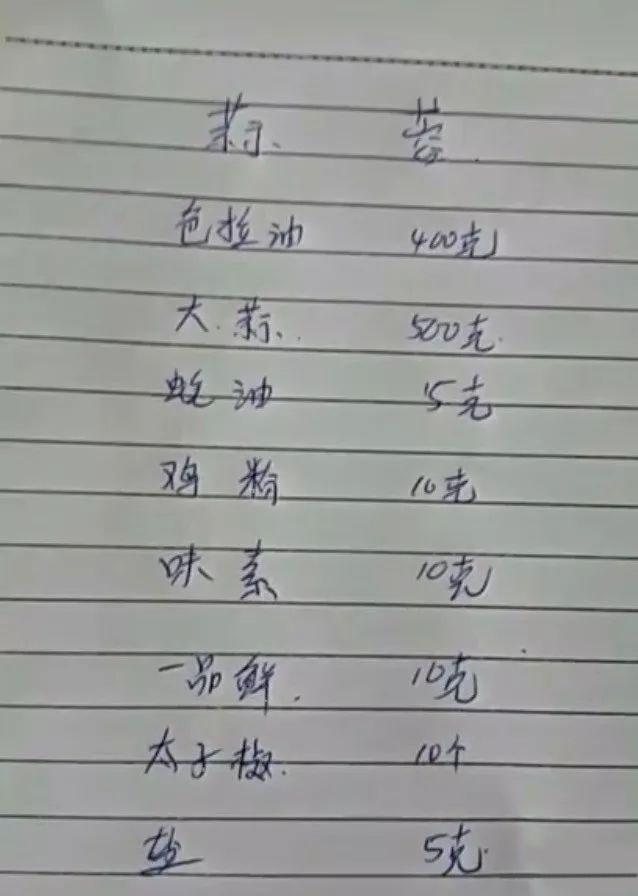 蒜 蓉
色拉油 400克
大蒜 500克
蚝油 15克
鸡粉 10克
味素 10克
一品鲜 10克
太子椒 10个
盐 5克